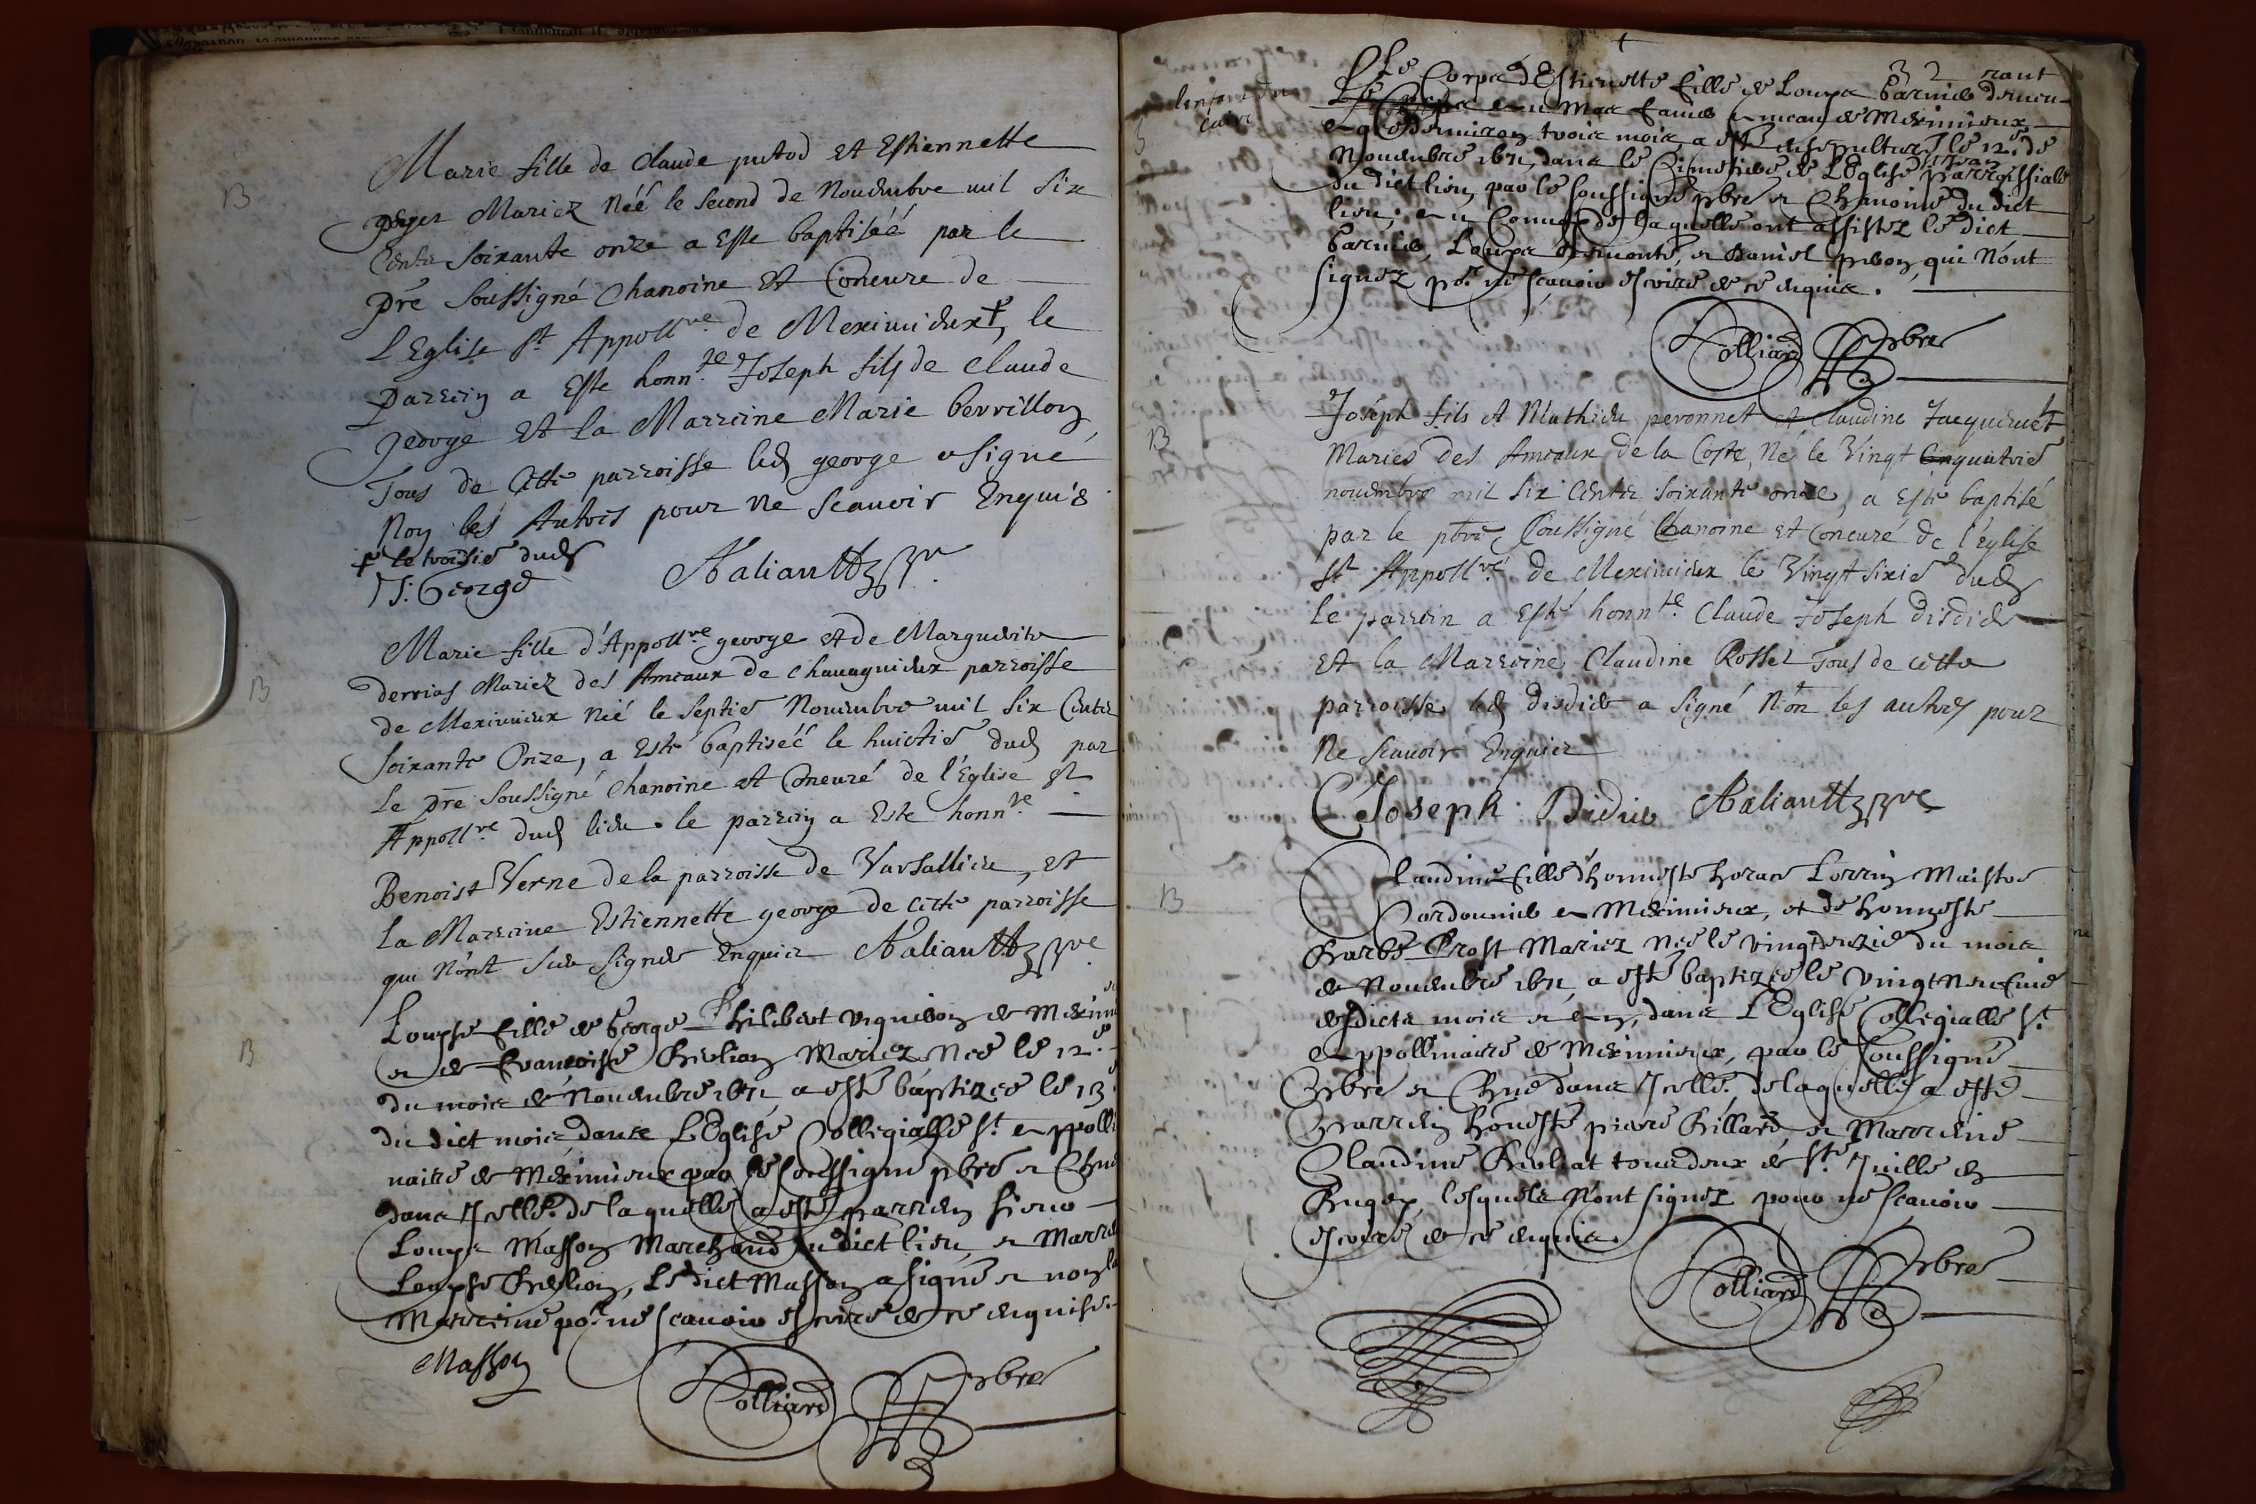 B
Marie fille de Claude putod et Estiennette
geger Mariez Néé le second de Nouembre mil six
Cents soixante onze a Este baptiséé par le
pbre soussigné Chanoine et Concure de
L'Eglise st Appollre de Meximieux ┼, le
parrein a Este honnte Joseph fils de Claude
george et la Marreine Marie berrillon
Tous de Cette parroisse led george a signé
Non les Autres pour ne scauoir Enquis
┼ le troisie dud
J: George
Aaliault pbre
B
Marie fille d'Appollre george et de Marguerite
derrias Mariez des Ameaux de Chauagnieux parroisse
de Meximieux Néé le septie Nouembre mil six Cents
soixante Onze, a Esté baptiséé le huictie dud par
le pbre soussigné Chanoine et Concuré de l'Eglise st
Appollre dud lieu. le parrein a Este honnte
Benoist Verne de la parroisse de Varsallieu, et
la Marreine Estiennette george de cette parroisse
qui n'ont sceu signer Enquis Aaliault pbre
B
Loupse fille de George Philibert viguiron de Mexim
et de Francoise Brelion Mariez Née le 12e
du mois de Nouembre 1671, a esté baptizée le 13
du dict mois dans L'Eglise Collegialle st Appolli
naire de Meximieux par le soussigné pbre et Chne
dans Jcelle. de laquelle a esté parrein sieur
Loups Masson Marchand du dict lieu, et Marre
Loupse Brelion, Le dict Masson a signé et non la
Marreine pour ne scauoir escrire de ce enquise.
Masson
Folliard pbre
32
Le Corps d'Estiennette fille de Loups barnier demeu-rant
en Meximieux
aagée d'enuiron trois mois, a esté ensepulturé le 12e de
Nouembre 1671, dans le Cimetiere de L'Eglise parrossialle
du dict lieu, par le soussigné pbre et Chanoine du dict
lieu; au Conuoy de laquelle ont assistez le dict
barnier, Loups et Daniel qui n'ont
signez pour ne scauoir escrire de ce enquis.
Folliard pbre
B
Joseph fils A Mathieu peronnet et Claudine Jacquemet
Mariés des Ameaux de la Coste, Né le Vingt Cinquiesme
nouembre mil six Cents soixante onze, a Esté baptisé
par le pbre soussigné Chanoine et Concuré de l'Eglise
st Appollre de Meximieux le Vingt sixie dud
le parrein a Esté honnte Claude Joseph disdier
et la Marreine Claudine Rosset Tous de cette
parroisse led disdier a signé Non les autres pour
Ne scauoir Enquis
Joseph Didier Aaliault pbre
B
Claudine fille d'honneste horace Lorrin Maistre
Cordonnier a Meximieux, et de honneste
Barbe Prost Mariez née le vingtdeuzie du mois
de Nouembre 1671, a esté baptizée le vingt neufuie
desdicts mois et an, dans L'Eglise Collegialle st
Appollinaire de Meximieux, par le soussigné
pbre et Chne dans Jcelle. de laquelle a esté
parrein honeste pierre Billard et Marreine
Claudine Brolliat tous deux de ste Juille en
Bugey, lesquels n'ont signez pour ne scauoir
escrire de ce enquis.
Folliard pbre